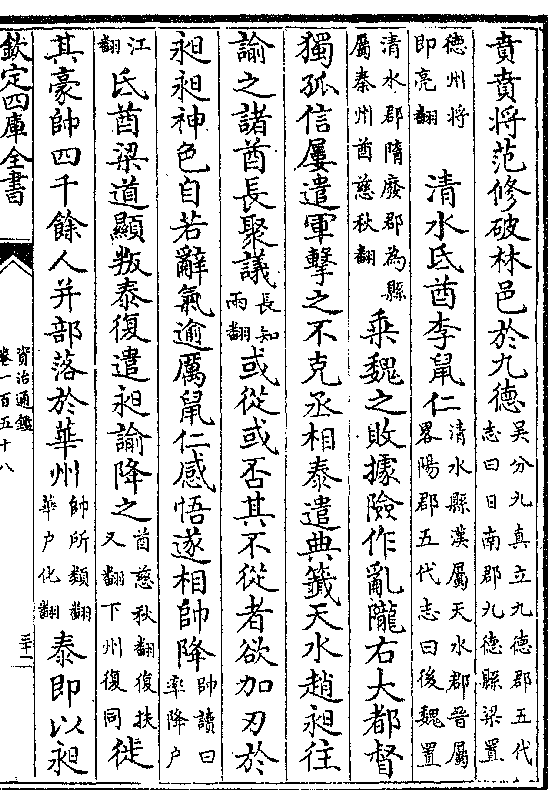 賁賁將范修破林邑於九德吳分九真立九德郡五代志曰日南郡九德縣梁置
德州將即亮翻　清水氐酋李鼠仁清水縣漢屬天水郡晉屬畧陽郡五代志曰後魏置
清水郡隋廢郡為縣屬秦州酋慈秋翻乘魏之敗據險作亂隴右大都督
獨孤信屢遣軍擊之不克丞相泰遣典籤天水趙昶往
諭之諸酋長聚議長知兩翻或從或否其不從者欲加刃於
昶昶神色自若辭氣逾厲鼠仁感悟遂相帥降帥讀曰率降户
江翻氐酋梁道顯叛泰復遣昶諭降之酋慈秋翻復扶又翻下州復同徙
其豪帥四千餘人并部落於華州帥所類翻華户化翻泰即以昶
欽定四庫全書
資治通鑑
卷一百五十八
三十二